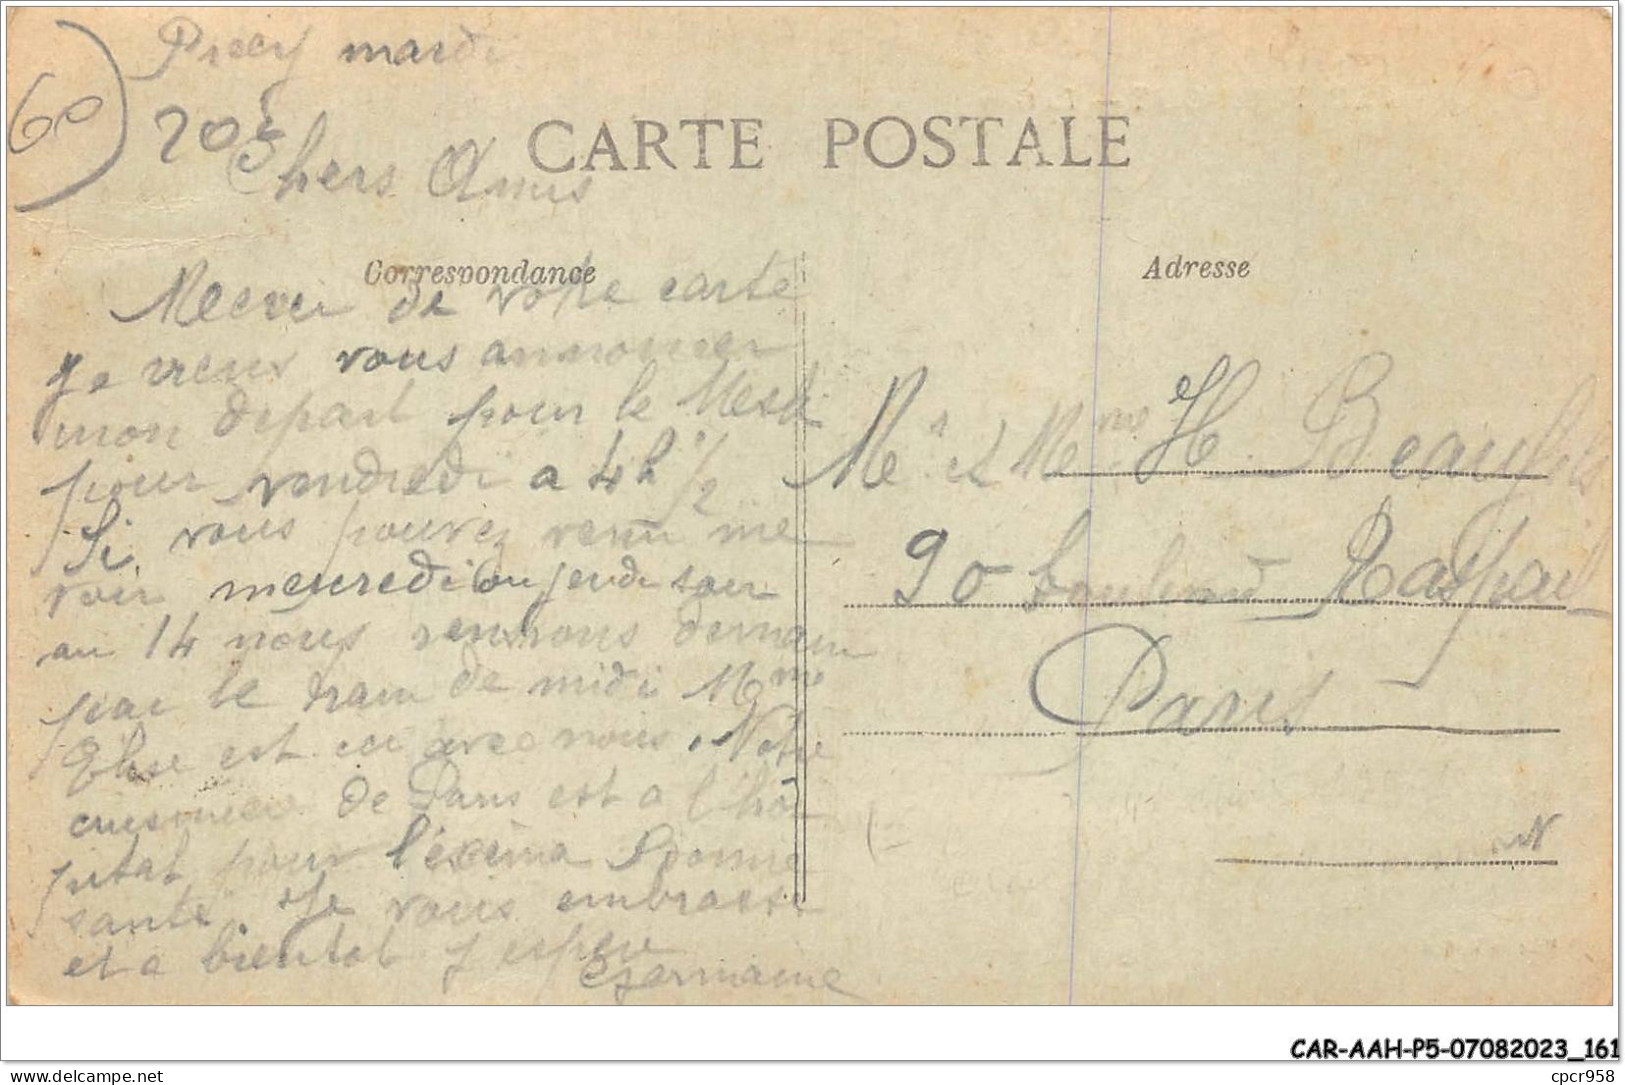 Precy mardi
60
CARTE POSTALE
Chers Amis
Correspondance
Adresse
Mercui de votre carte
je viens vous annoncer
mon depart pour le
pour vendredi a 4h 1/2
Si vous pouvez venir me
voir mercredi ou jeudi soir
au 14 nous rentrons demain
par le train de midi Mme
Elise est ici avec nous. Notre
cuisiniere de Paris est a l'hô
pital pour l'exema
santé. Je vous embrasse
et a bientot j espere
Germaine
Mr et Mme H. Beaufils
90 boulevard Raspail
Paris
CAR-AAH-P5-07082023_161
delcampe.net
cpcr958